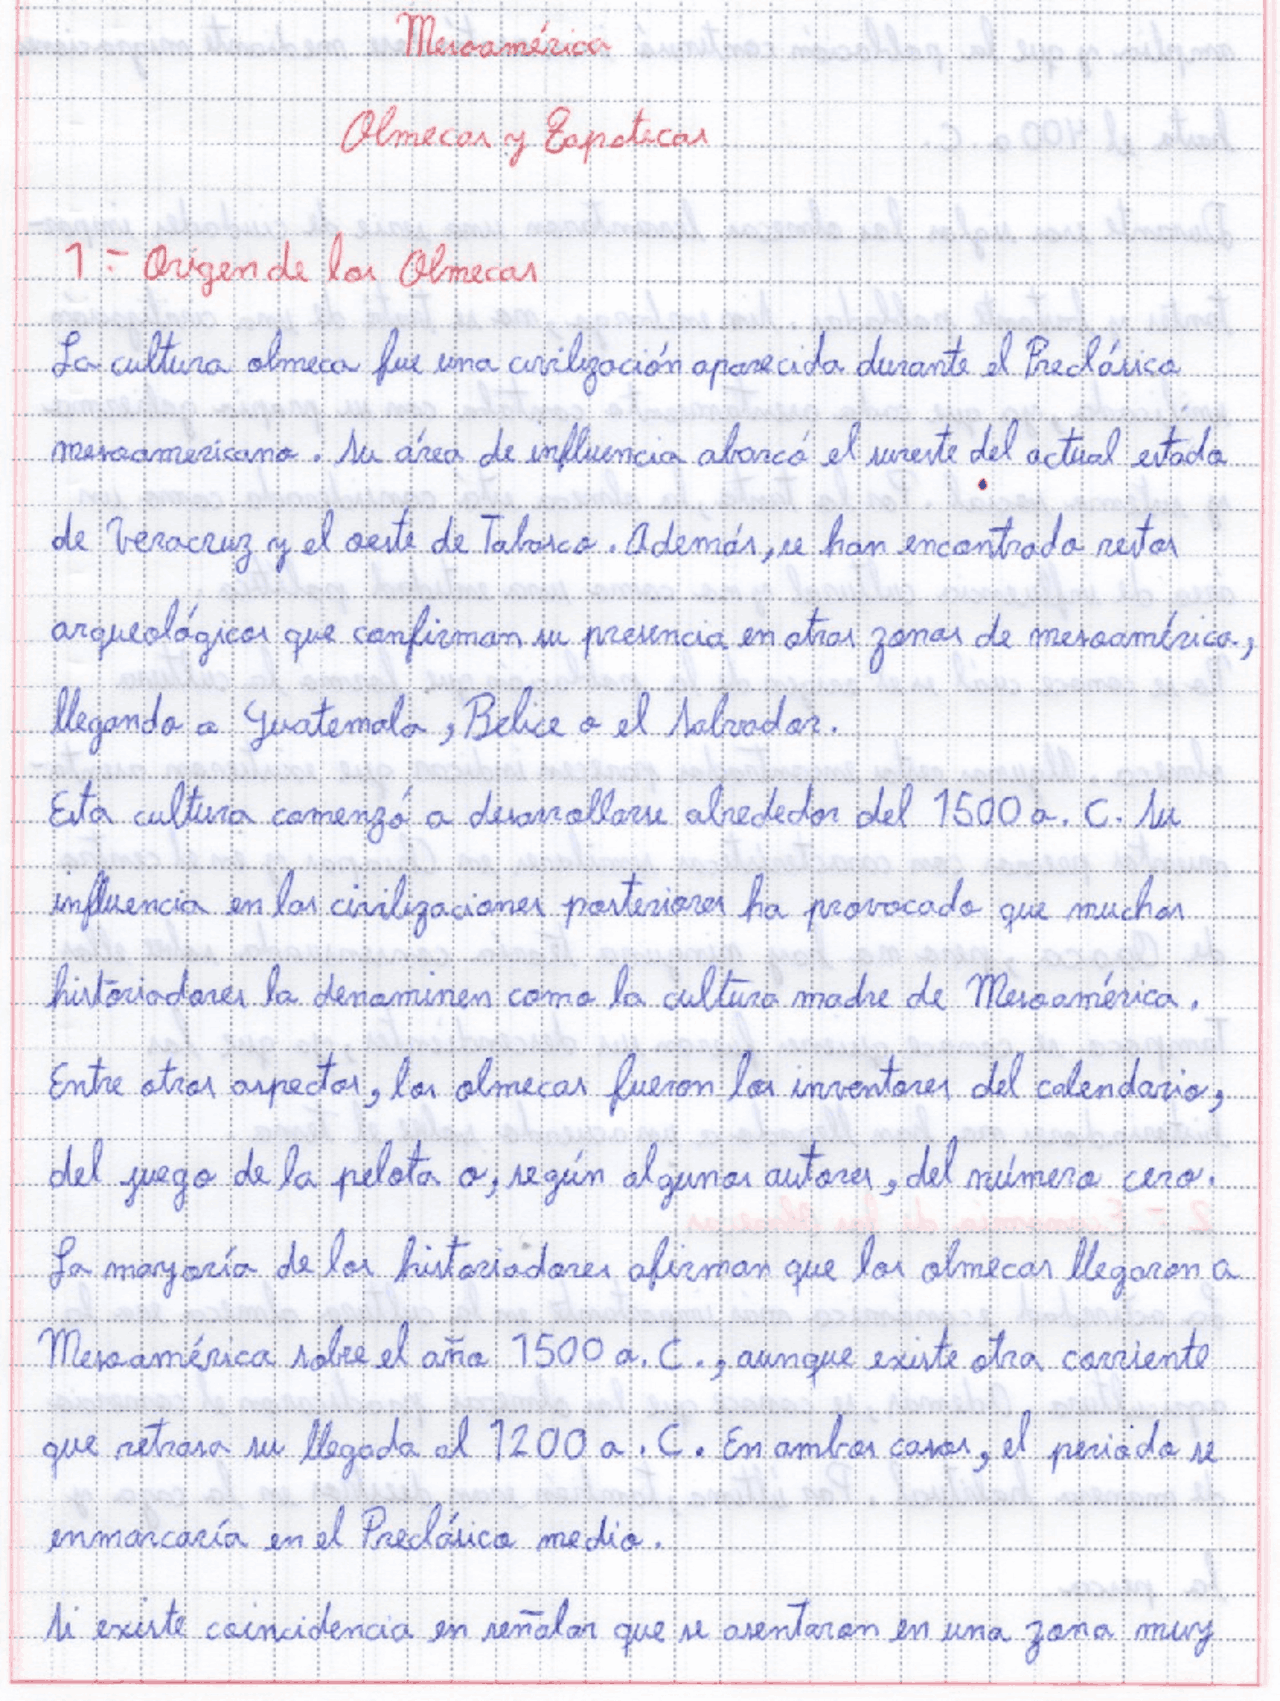 Mesoamérica
Olmecas y Zapotecas
1 = Origen de los Olmecas
La cultura olmeca fue una civilización aparecida durante el Preclásico
mesoamericano. Su área de influencia abarcó el sureste del actual estado
de Veracruz y el oeste de Tabasco. Además, se han encontrado restos
arqueológicos que confirman su presencia en otras zonas de mesoamérica,
llegando a Guatemala, Belice o el Salvador.
Esta cultura comenzó a desarrollarse alrededor del 1500 a. C. Su
influencia en las civilizaciones posteriores ha provocado que muchos
historiadores la denominen como la cultura madre de Mesoamérica.
Entre otros aspectos, los olmecas fueron los inventores del calendario,
del juego de la pelota o, según algunos autores, del número cero.
La mayoría de los historiadores afirman que los olmecas llegaron a
Mesoamérica sobre el año 1500 a. C., aunque existe otra corriente
que retrasa su llegada al 1200 a. C. En ambos casos, el periodo se
enmarcaría en el Preclásico medio.
Si existe coincidencia en señalar que se asentaron en una zona muy